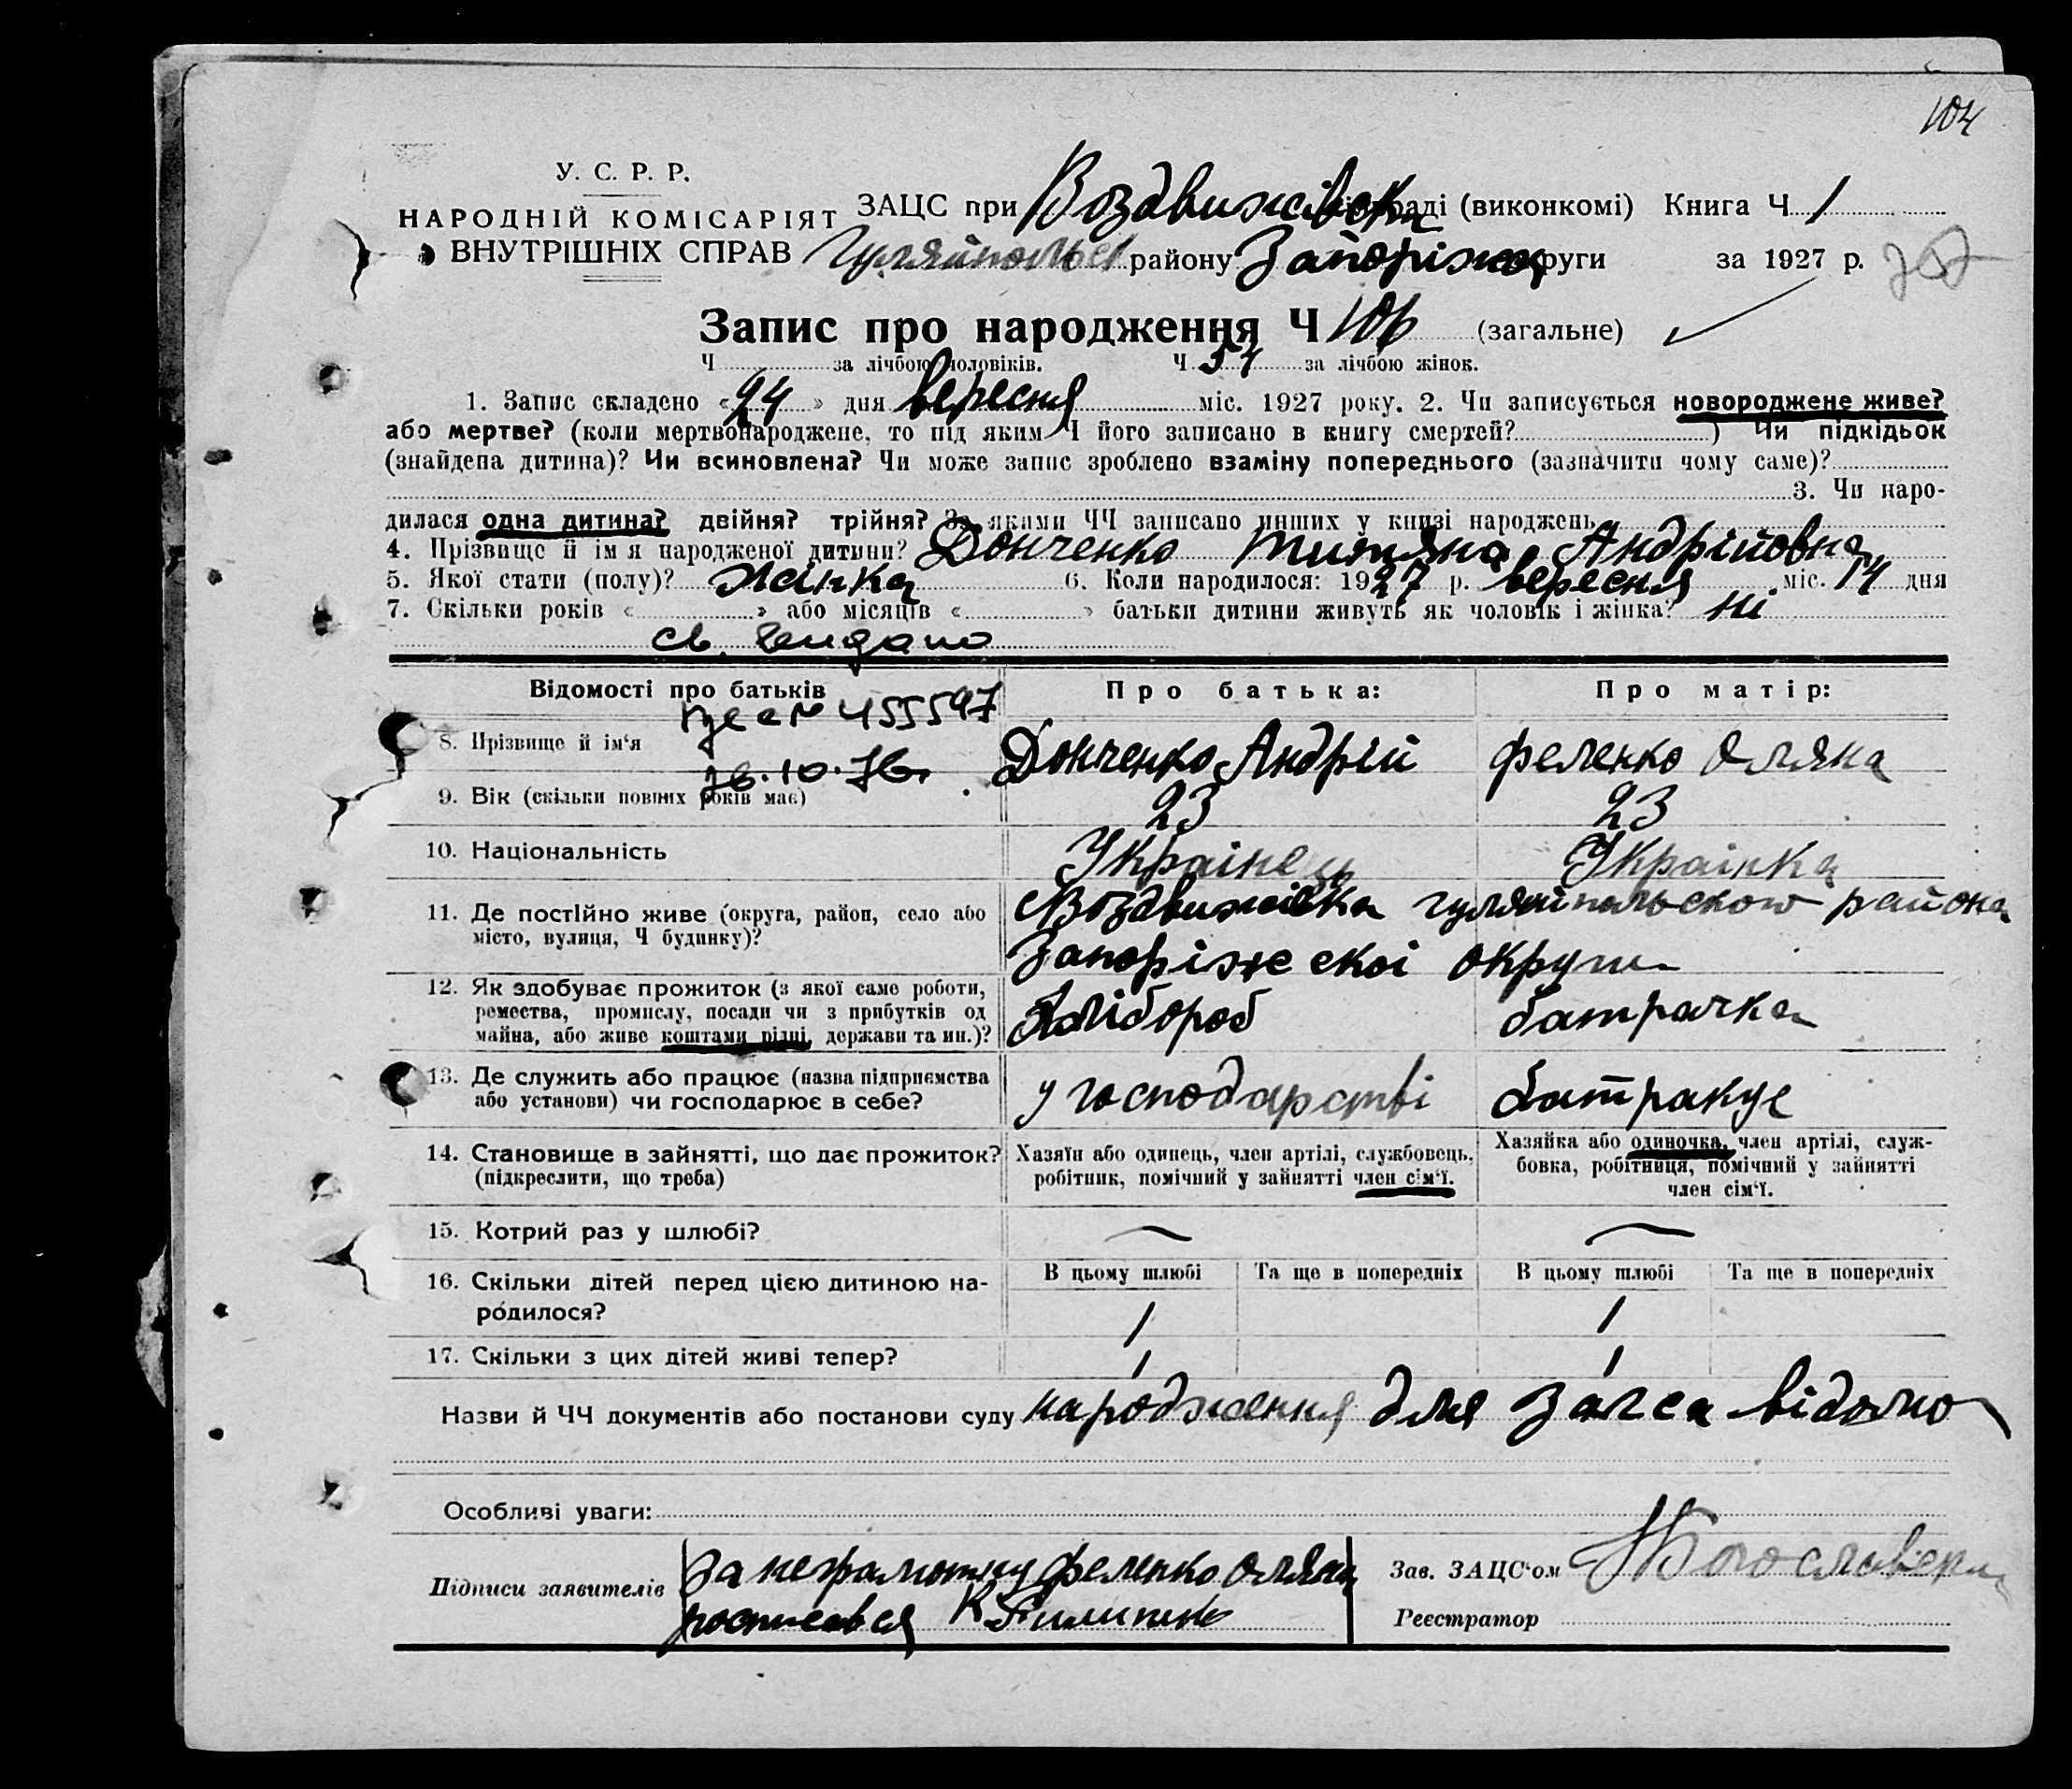 104
У. С. Р. Р.
НАРОДНІЙ КОМІСАРІЯТ
ВНУТРІШНІХ СПРАВ
ЗАЦС при Воздвижівск раді (виконкомі) Книга Ч. 1
Гуляйпольск району Запоріжск округи за 1927 р.
Запис про народження Ч 106 (загальне)
Ч. за лічбою чоловіків. Ч. 54 за лічбою жінок.
1. Запис складено «24» дня вересня міс. 1927 року. 2. Чи записується новороджене живе?
або мертве? (коли мертвонароджене, то під яким Ч його записано в книгу смертей?) Чи підкідьок
(знайдена дитина)? Чи всиновлена? Чи може запис зроблено взаміну попереднього (зазначити чому саме)?
3. Чи наро-
дилася одна дитина? двійня? трійня? За якими ЧЧ записано инших у книзі народжень
4. Прізвище й ім'я народженої дитини? Донченко Титяна Андрійовна
5. Якої стати (полу)? жінка 6. Коли народилося: 1927 р. вересня міс. 14 дня
7. Скільки років «» або місяців «» батьки дитини живуть як чоловік і жінка? ні
св.
Відомості про батьків Про батька: Про матір:
№ 455597
8. Прізвище й ім'я Донченко Андрій Феленко Оляна
10.76
9. Вік (скільки повних років має) 23 23
10. Національність Українець Українка
11. Де постійно живе (округа, район, село або Воздвижівка гуляйпольского района
місто, вулиця, Ч будинку)? Запоріжскої округи
12. Як здобуває прожиток (з якої саме роботи,
ремества, промислу, посади чи з прибутків од Хлібороб батрачка
майна, або живе коштами рідні, держави та ин.)?
13. Де служить або працює (назва підприємства у господарстві батракує
або установи) чи господарює в себе?
14. Становище в зайнятті, що дає прожиток? Хазяїн або одинець, член артілі, службовець, Хазяйка або одиночка, член артілі, служ-
(підкреслити, що треба) робітник, помічний у зайнятті член сім'ї. бовка, робітниця, помічний у зайнятті
член сім'ї.
15. Котрий раз у шлюбі? — —
16. Скільки дітей перед цією дитиною на- В цьому шлюбі Та ще в попередніх В цьому шлюбі Та ще в попередніх
родилося? 1 1
17. Скільки з цих дітей живі тепер? 1 1
Назви й ЧЧ документів або постанови суду народження для загса відомо
Особливі уваги:
Підписи заявителів За неграмотну Феленко Оляну
росписався К Пилипенко
Зав. ЗАЦС'ом
Реєстратор